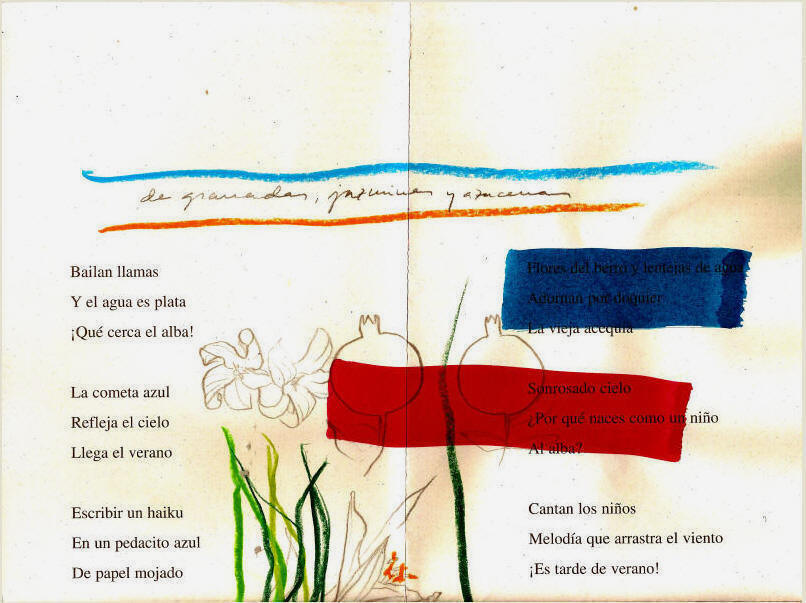 de granadas, jazmines y azucenas
Bailan llamas
Y el agua es plata
¡Qué cerca el alba!
La cometa azul
Refleja el cielo
Llega el verano
Escribir un haiku
En un pedacito azul
De papel mojado
Flores del berro y lentejas de agua
Adornan por doquier
La vieja acequia
Sonrosado cielo
¿Por qué naces como un niño
Al alba?
Cantan los niños
Melodía que arrastra el viento
¡Es tarde de verano!